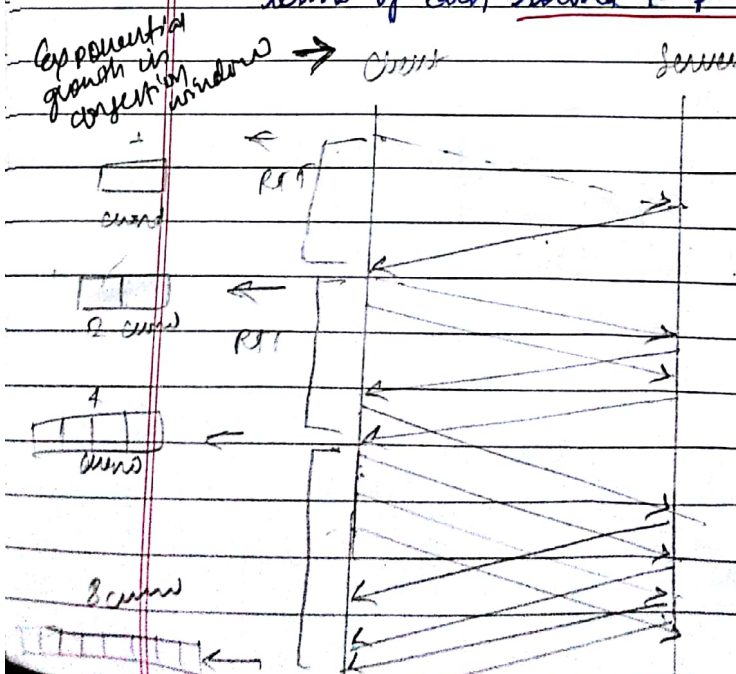 of each
Exponential
growth in
congestion
window
Client
Server
1
RTT
cwnd
2 cwnd
RTT
4
cwnd
8 cwnd